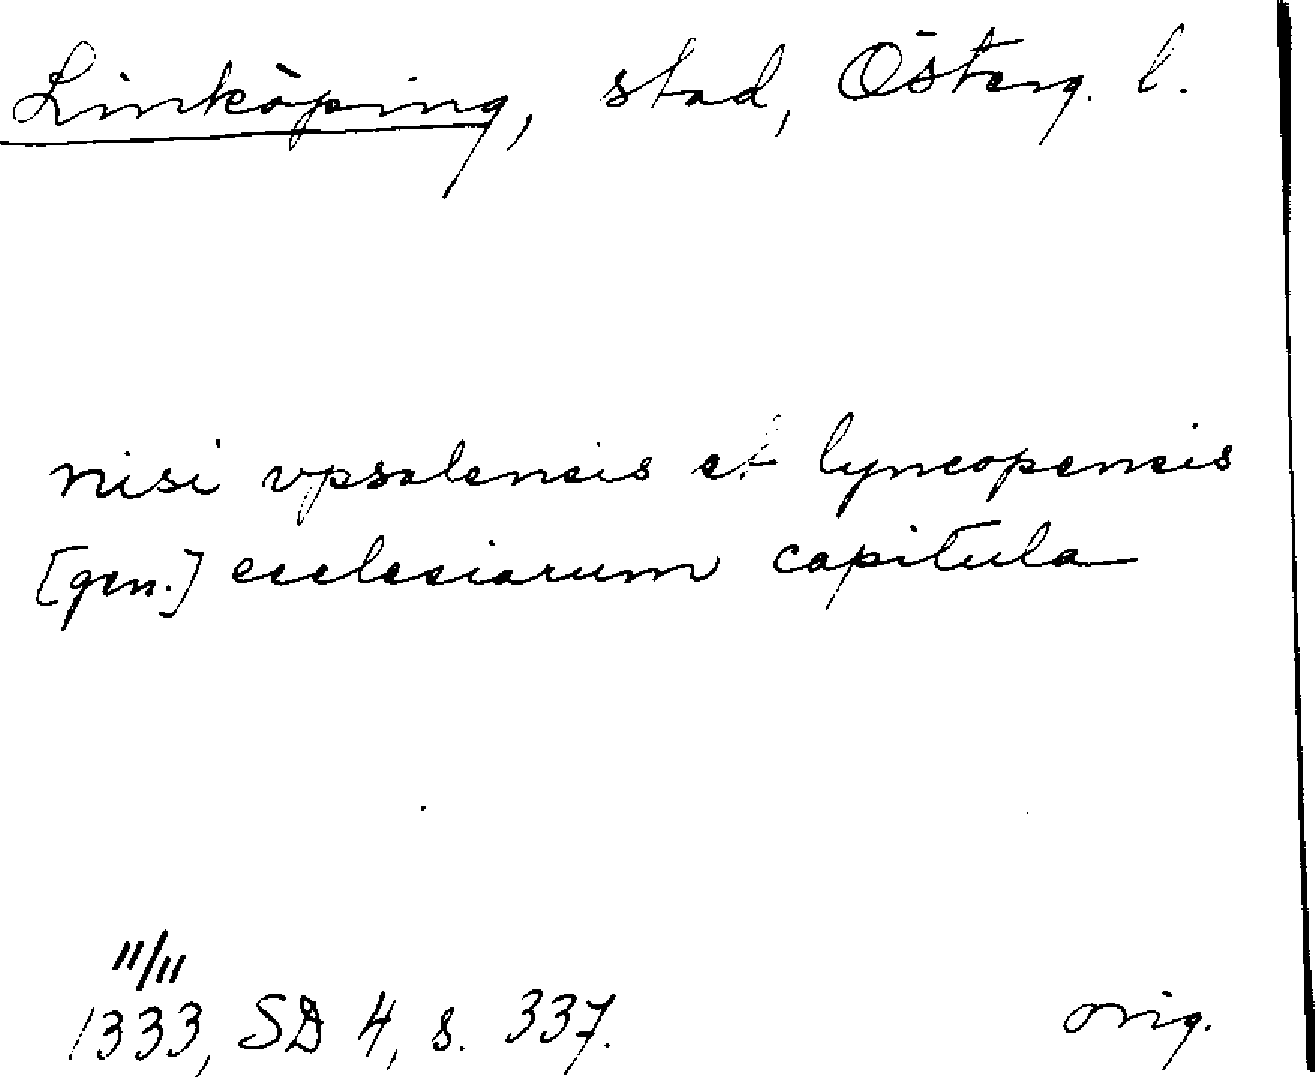 Linköping, stad, Österg. l.
nisi vpsalensis et lyncopensis
[gen.] ecclesiarum capitula
11/11
1333, SD 4, s. 337. orig.